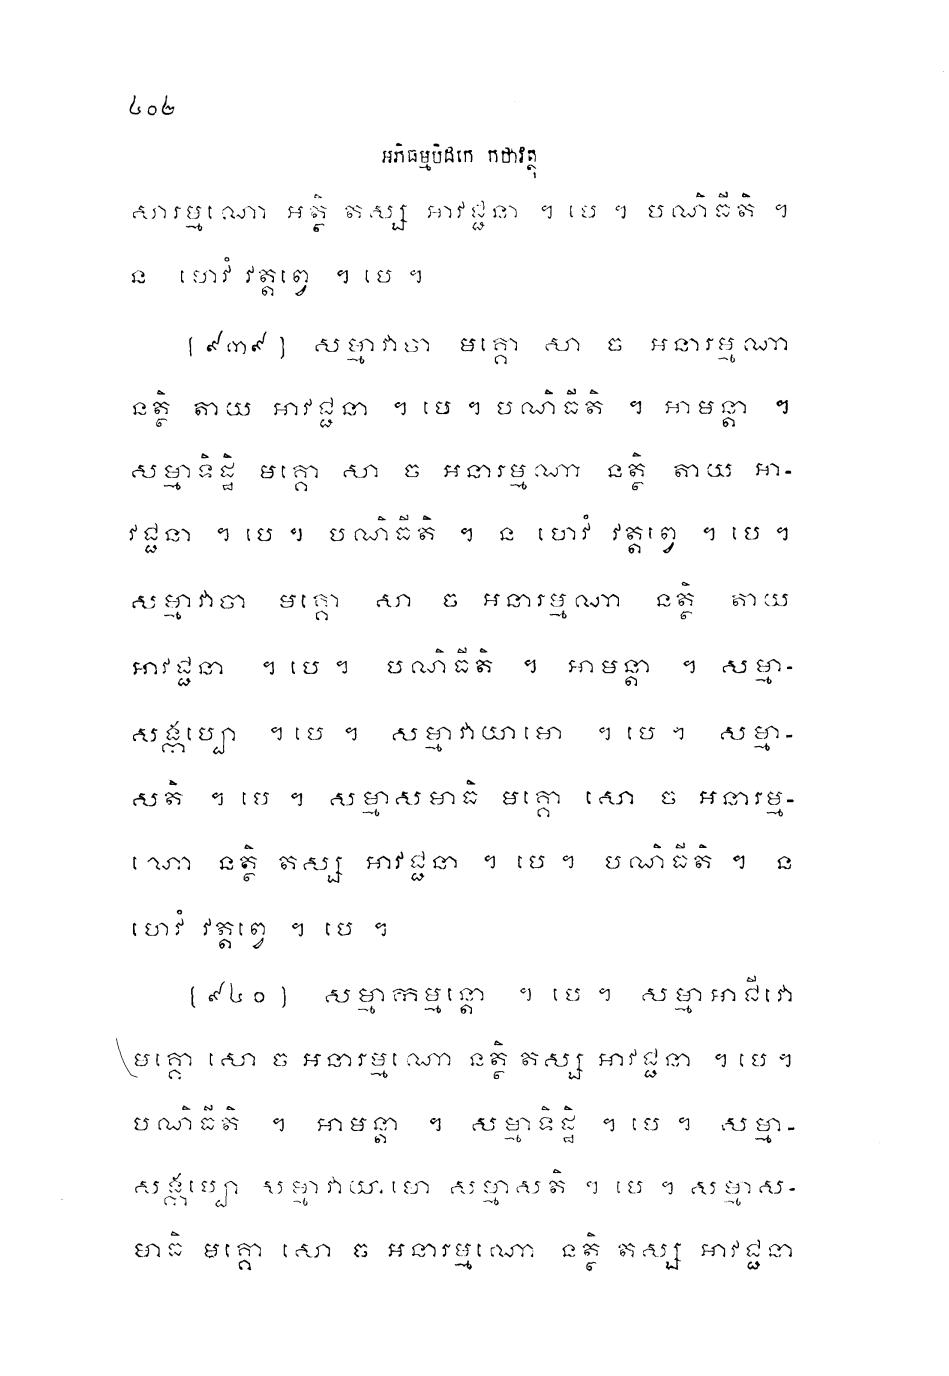 ៤០២
អភិធម្មបិដកេ កថាវត្ថុ
សារម្មណោ អត្ថិ តស្ស អាវជ្ជនា ។ បេ ។ បណិធីតិ ។
ន ហេវំ វត្តព្វេ ។ បេ ។
[៩៣៩] សម្មាវាចា មគ្គោ សា ច អនារម្មណា
នត្ថិ តាយ អាវជ្ជនា ។ បេ ។ បណិធីតិ ។ អាមន្តា ។
សម្មាទិដ្ឋិ មគ្គោ សា ច អនារម្មណា នត្ថិ តាយ អា-
វជ្ជនា ។ បេ ។ បណិធីតិ ។ ន ហេវំ វត្តព្វេ ។ បេ ។
សម្មាវាចា មគ្គោ សា ច អនារម្មណា នត្ថិ តាយ
អាវជ្ជនា ។ បេ ។ បណិធីតិ ។ អាមន្តា ។ សម្មា-
សង្កប្បោ ។ បេ ។ សម្មាវាយាមោ ។ បេ ។ សម្មា-
សតិ ។ បេ ។ សម្មាសមាធិ មគ្គោ សោ ច អនារម្ម-
ណោ នត្ថិ តស្ស អាវជ្ជនា ។ បេ ។ បណិធីតិ ។ ន
ហេវំ វត្តព្វេ ។ បេ ។
[៩៤០] សម្មាកម្មន្តោ ។ បេ ។ សម្មាអាជីវោ
មគ្គោ សោ ច អនារម្មណោ នត្ថិ តស្ស អាវជ្ជនា ។ បេ ។
បណិធីតិ ។ អាមន្តា ។ សម្មាទិដ្ឋិ ។ បេ ។ សម្មា-
សង្កប្បោ សម្មាវាយាមោ សម្មាសតិ ។ បេ ។ សម្មាស-
មាធិ មគ្គោ សោ ច អនារម្មណោ នត្ថិ តស្ស អាវជ្ជនា